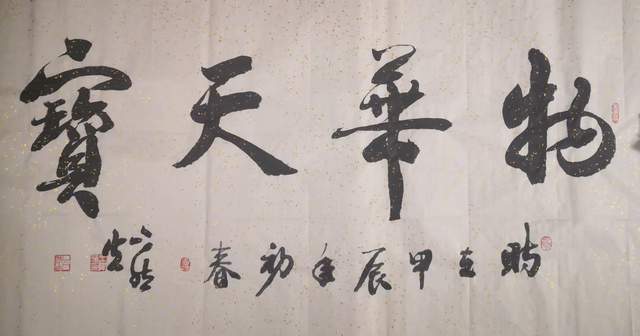 物華天寶
時在甲辰年初春